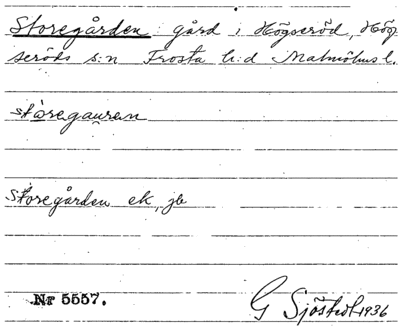 Storegården: gård i Högseröd, Hög-
seröds s:n Frosta h:d Malmöhus l.
stòregauren
Storegården ek, jb
Nr 5557.
G Sjöstedt 1936